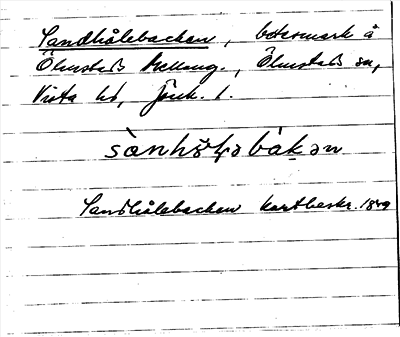 Sandhålebacken, betesmark å
Ölmstads Mellang., Ölmstads sn,
Vista hd, Jönk. l.
sànhǒļəbàkən
Sandhålebacken kartbeskr. 1849